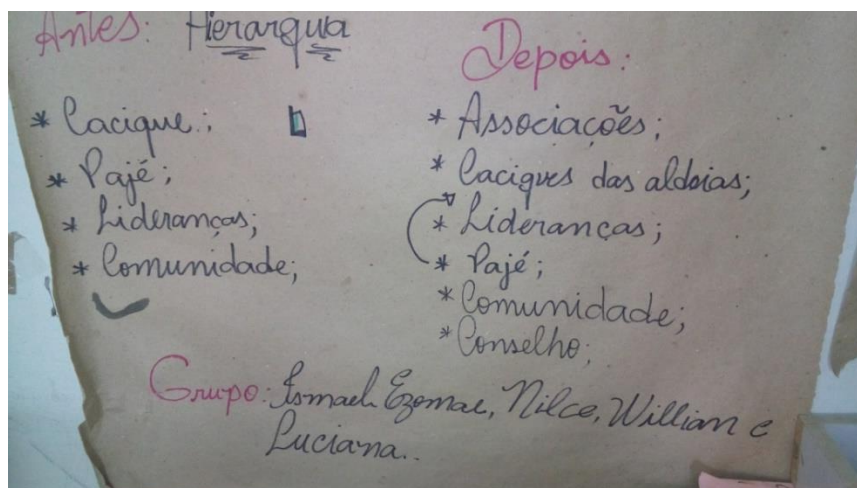 Antes: Hierarquia
* Cacique.;
* Pajé;
* Lideranças;
* Comunidade;
Depois:
* Associações;
* Caciques das aldeias;
* Lideranças;
* Pajé;
* Comunidade;
* Conselho;
Grupo: Ismael Ezomae, Nilce, Willian e
Luciana..